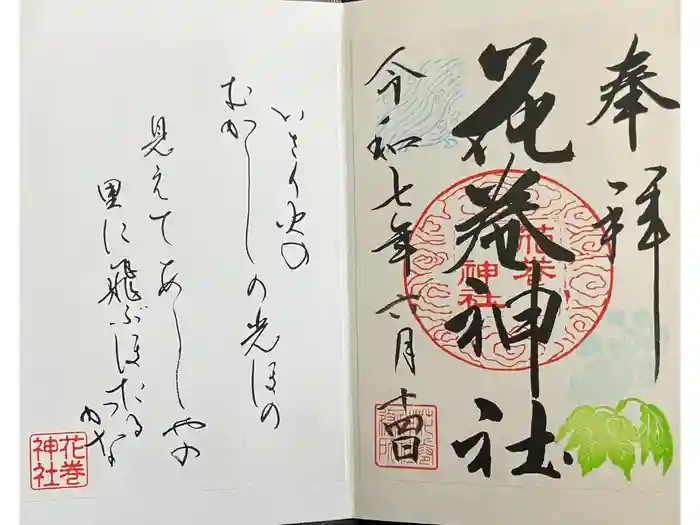 奉拝
花巻神社
花巻
神社
令和七年六月十四日
いさり火の
むかしの光ほの
見えてあしやの
里に飛ぶほたる
かな
花巻
神社